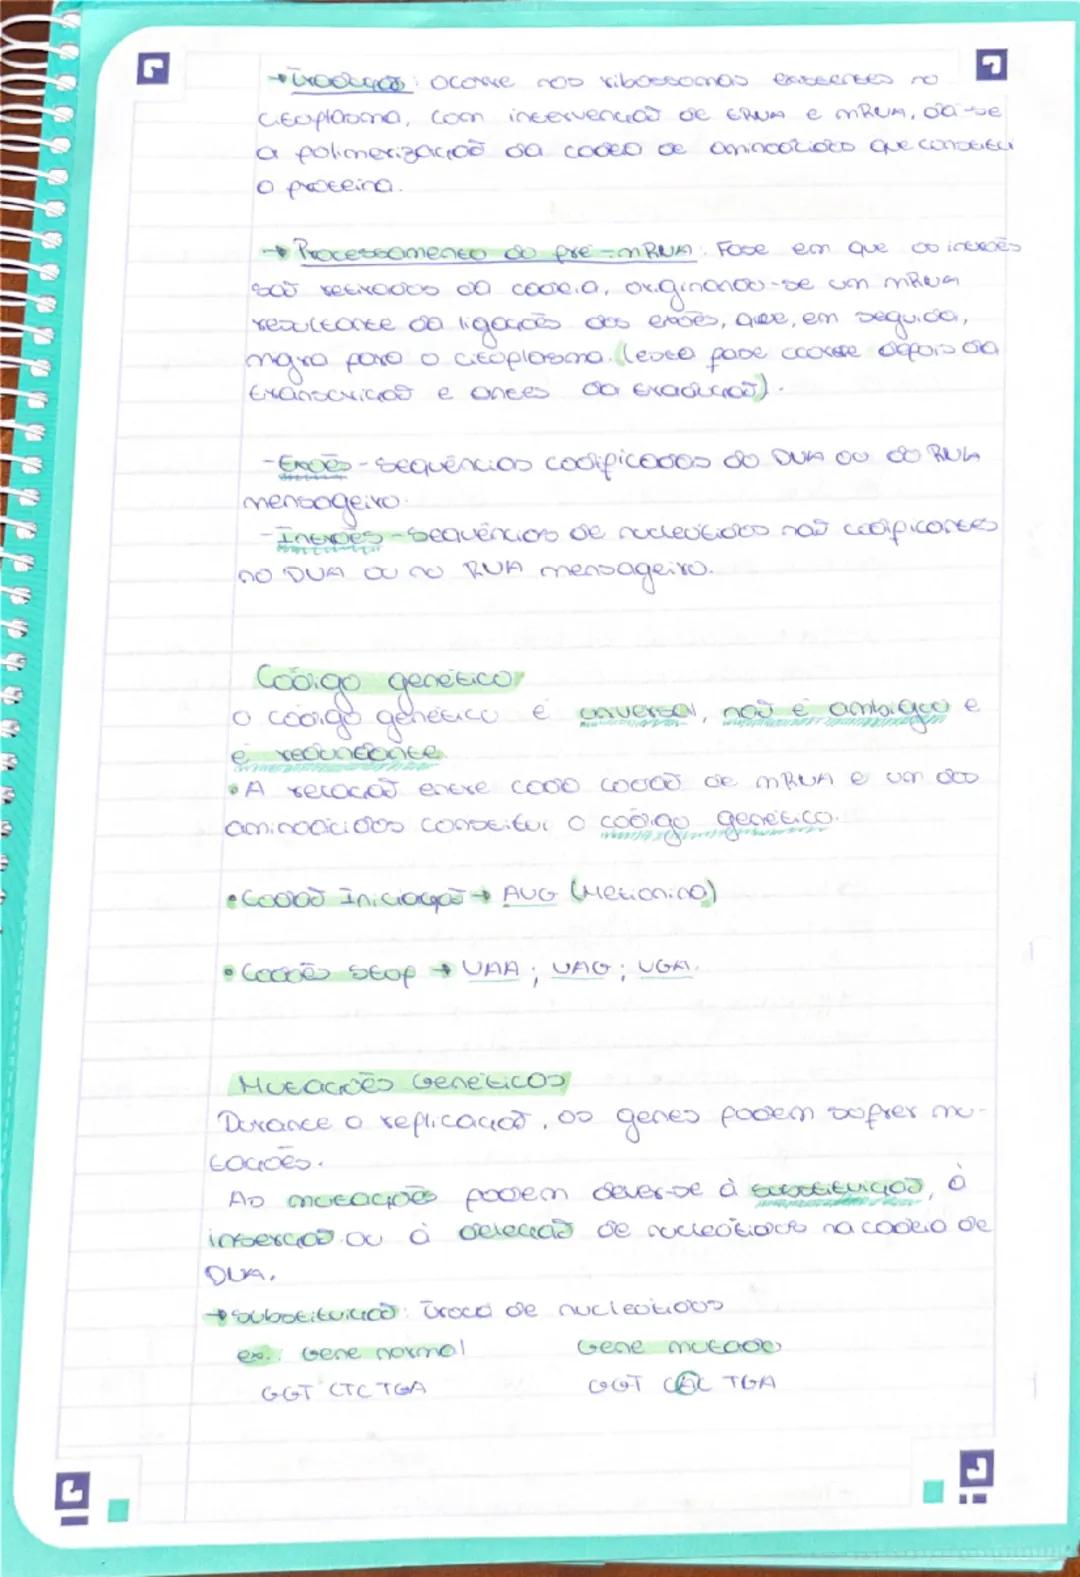 →Tradução: ocorre nos ribossomas existentes no
citoplasma, com intervenção de tRNA e mRNA, dá-se
a polimerização da cadeia de aminoácidos que constitui
a proteína.
→ Processamento do pré-mRNA: Fase em que os intrões
são retirados da cadeia, originando-se um mRNA
resultante da ligações dos exões, que, em seguida,
migra para o citoplasma. (esta fase ocorre depois da
transcrição e antes da tradução).
-Exões - sequências codificadas do DNA ou do RNA
mensageiro.
-Intrões - sequências de nucleótidos não codificantes
no DNA ou no RNA mensageiro.
Código genético
O código genético é universal, não é ambíguo e
é redundante
• A relação entre cada codão de mRNA e um dos
aminoácidos constitui o código genético.
• Codão Iniciação → AUG (Metionina)
• Codões Stop → UAA; UAG; UGA.
Mutações Genéticas
Durante a replicação, os genes podem sofrer mu-
tações.
As mutações podem dever-se à substituição, à
inserção ou à deleção de nucleótidos na cadeia de
DNA.
→ Substituição: Troca de nucleótidos
ex.: Gene normal Gene mutado
GGT CTC TGA GGT CAC TGA